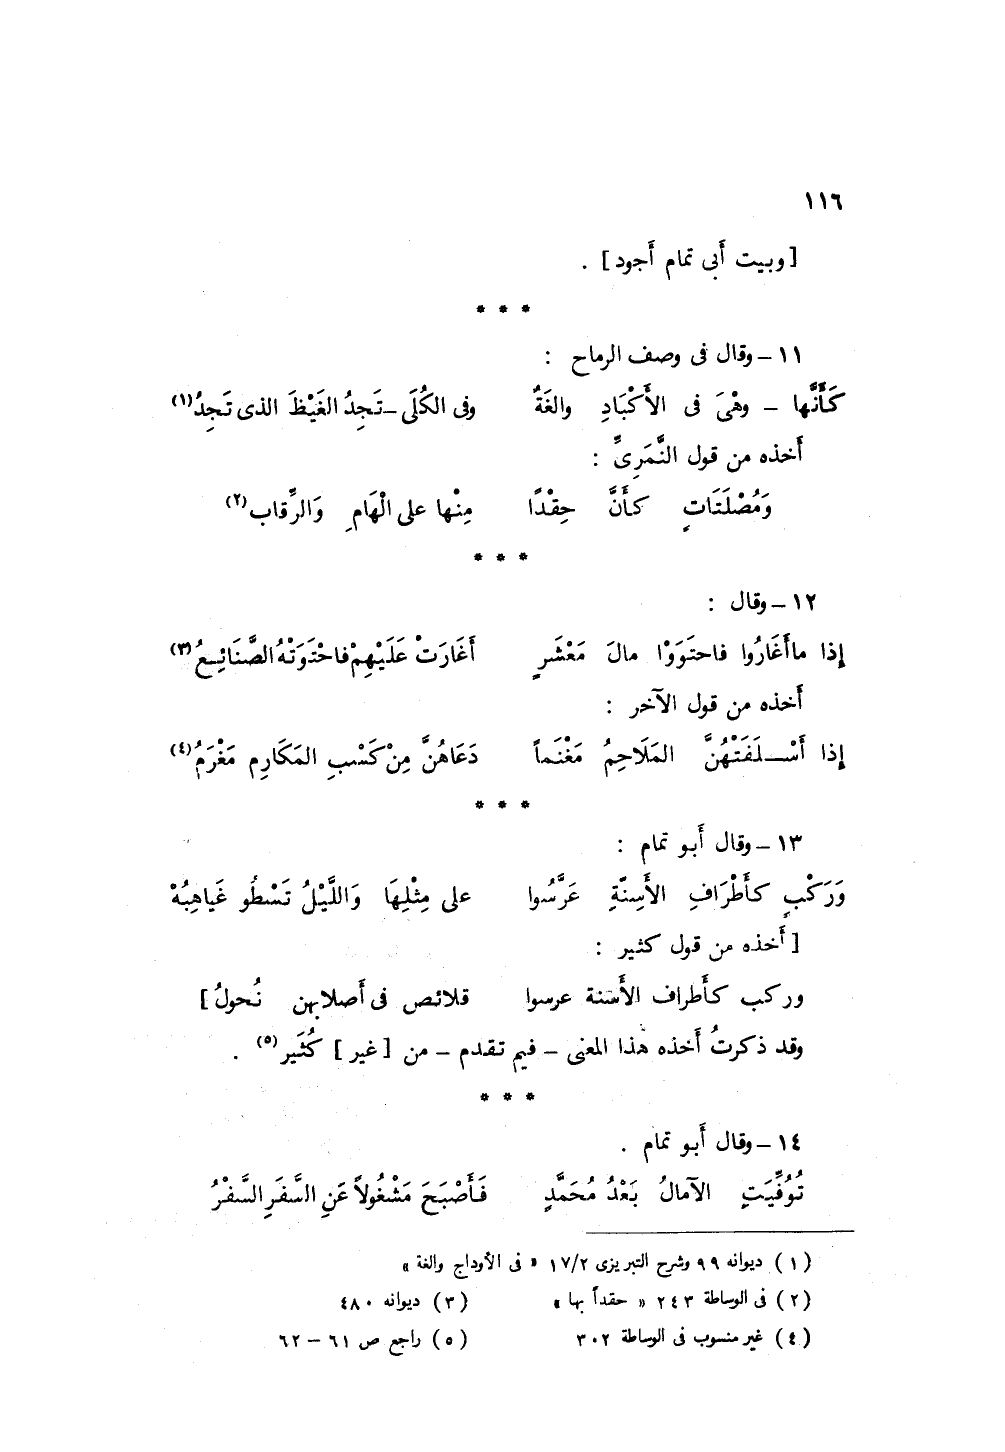 ١١٦
[ وبيت أَبى تمام أَجود ] .
* * *
١١ – وقال فى وصف الرماح :
كَأَنَّها – وهْىَ فى الأَكْبَادِ والغَةٌ وفى الكُلَى – تَجِدُ الغَيْظَ الذى تَجِدُ(١)
أَخذه من قول النَّمَرِىِّ :
وَمُصْلَتَاتٍ كأَنَّ حِقْدًا مِنْها على الْهَامِ وَالرِّقاب(٢)
* * *
١٢ – وقال :
إذا ماأَغَارُوا فاحتَوَوْا مالَ مَعْشَرٍ أَغَارَتْ عَلَيْهِمْ فاحْتَوَتْهُ الصَّنَائِعُ(٣)
أَخذه من قول الآخر :
إذا أَسْلَفَتْهُنَّ المَلَاحِمُ مَغْنَماً دَعَاهُنَّ مِنْ كَسْبِ المَكَارِم مَغْرَمُ(٤)
* * *
١٣ – وقال أَبو تمام :
وَرَكْبٍ كأَطْرَافِ الأَسِنَّةِ عَرَّسُوا على مِثْلِهَا وَاللَّيْلُ تَسْطُو غَياهِبُهْ
[ أَخذه من قول كثير :
وركب كأَطراف الأَسنة عرسوا قلائص فى أَصلابهن نُحولُ ]
وقد ذكرتُ أَخذه هٰذا المعنى – فيم تقدم – من [ غير ] كُثَير(٥) .
* * *
١٤ – وقال أَبو تمام .
تُوُفِّيَتِ الآمالُ بَعْدُ مُحَمَّدٍ فَأَصْبَحَ مَشْغُولاً عَنِ السَّفَرِ السَّفْرُ
(١) ديوانه ٩٩ وشرح التبريزى ١٧/٢ « فى الأوداج والغة »
(٢) فى الوساطة ٢٤٣ « حقداً بها » (٣) ديوانه ٤٨٠
(٤) غير منسوب فى الوساطة ٣٠٢ (٥) راجع ص ٦١ – ٦٢